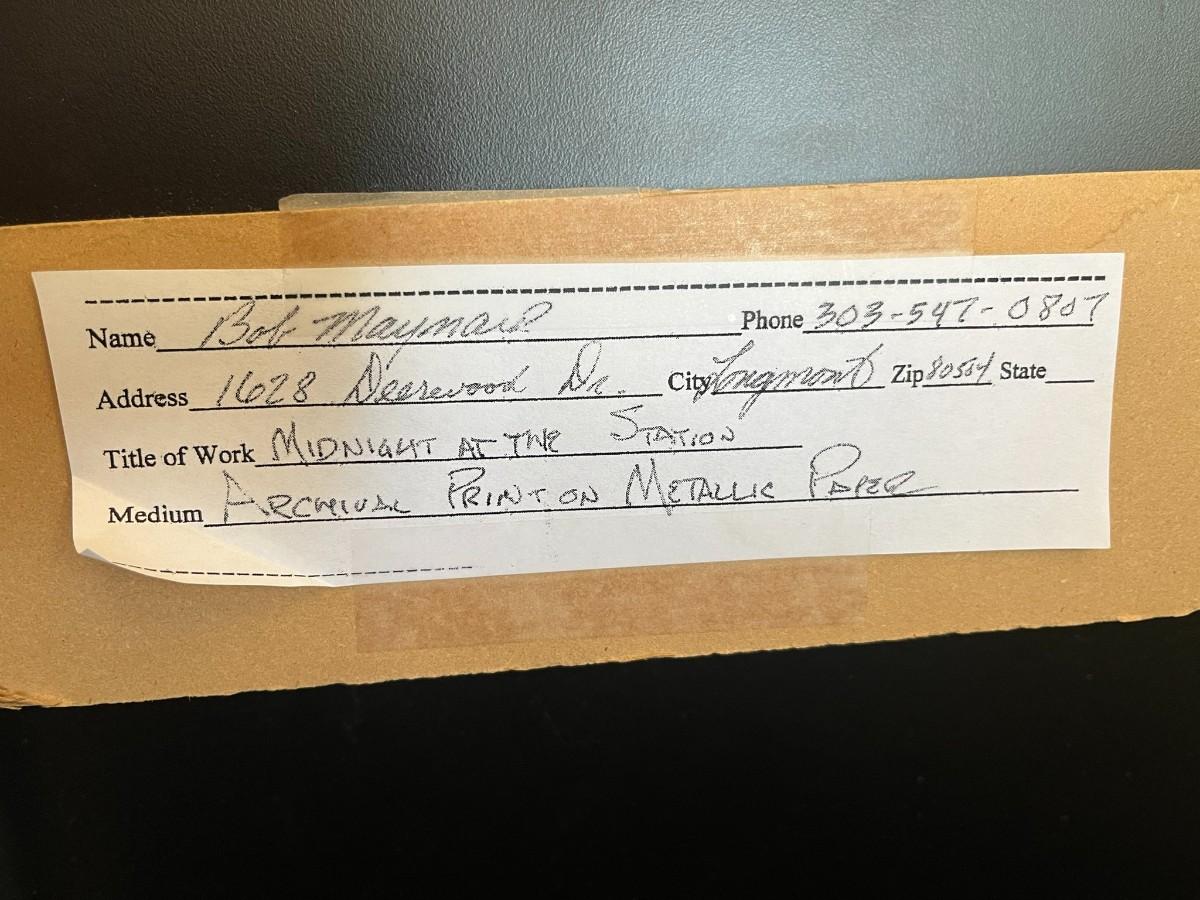 Name Bob Maynard Phone 303-547-0807
Address 1628 Deerwood Dr. City Longmont Zip 80504 State
Title of Work MIDNIGHT AT THE STATION
Medium ARCHIVAL PRINT ON METALLIC PAPER